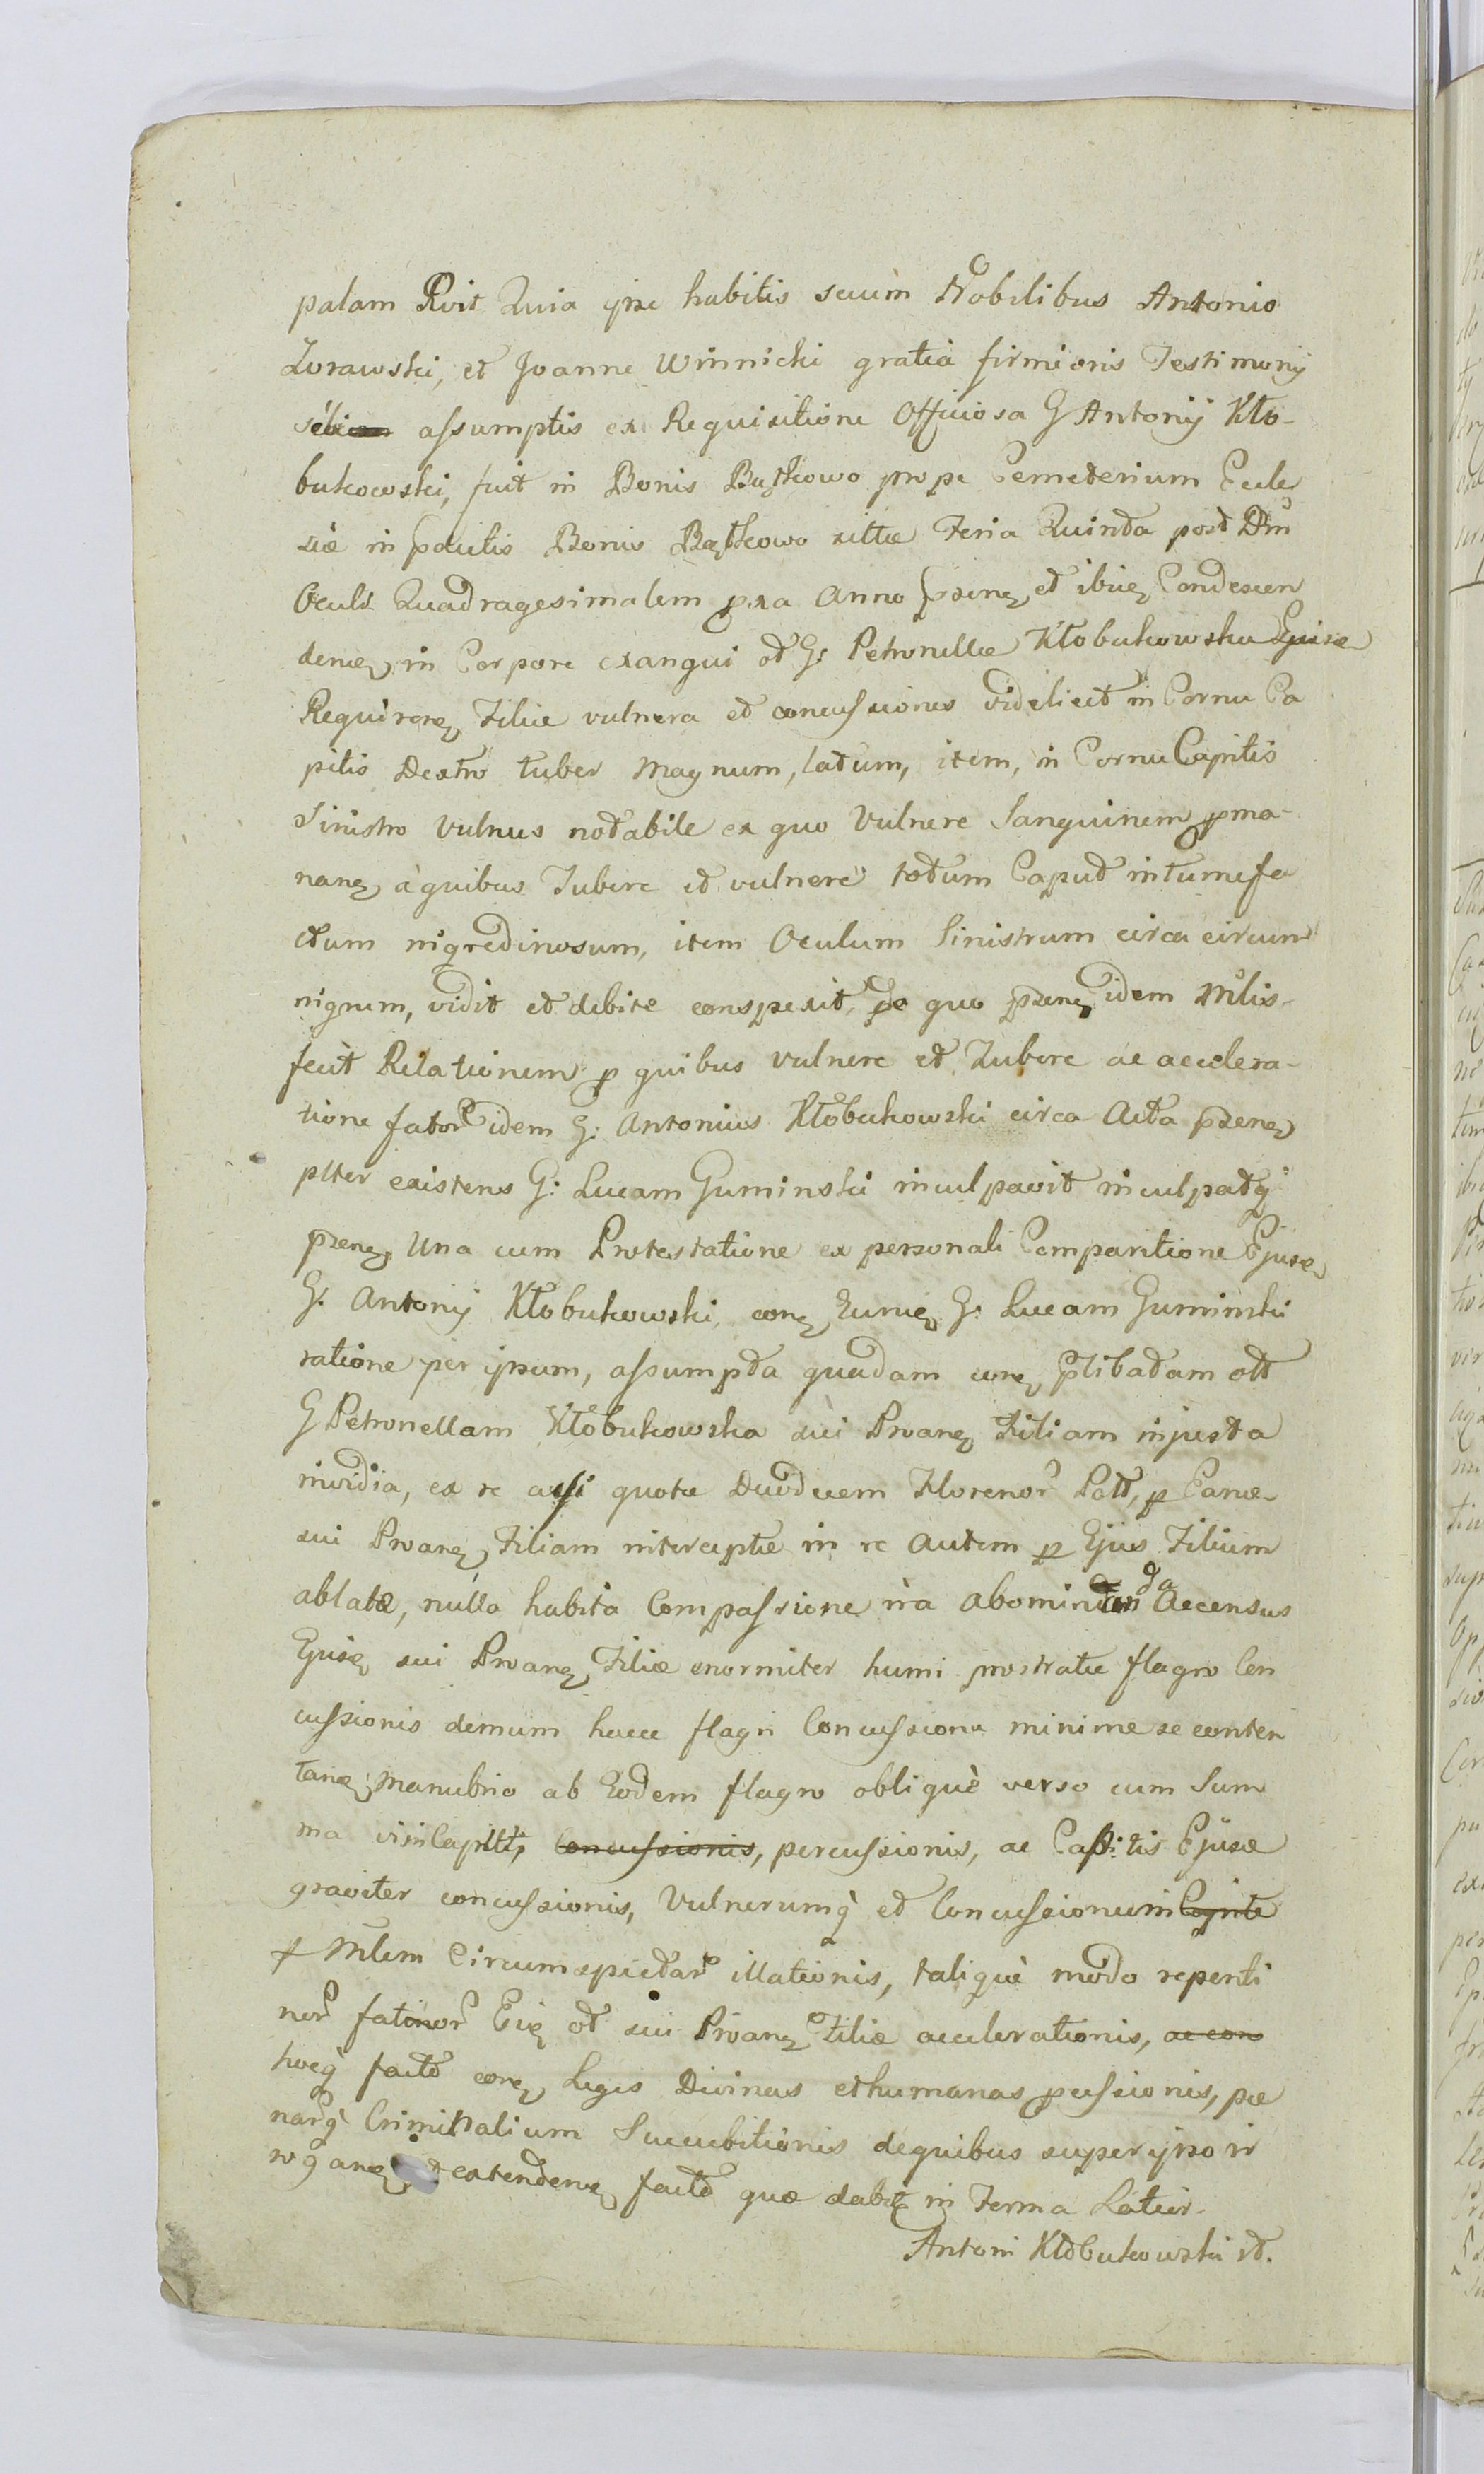 palam Rvit Quia ipse habitis secum Nobilibus Antonio
Zorawski, et Joanne Winnicki gratia firmioris Testimonij
sibi assumptis ex Requisitione Officiosa G Antonij Kło-
bukowski, fuit in Bonis Bątkowo prope Cemeterium Eccle
siæ in pdictis Bonis Bątkowo sittæ Feria Quinta post Dm̃
Oculi Quadragesimalem pxa Anno psenz et ibiez Condescen
denz in Corpore exangui ot̃ G: Petronellæ Kłobukowska Ejusæ
Requirenz Filiæ vulnera et concussiones videlicet in Cornu Ca
pitis Dextro tuber Magnum, latum, item, in Cornu Capitis
Sinistro Vulnus notabile ex quo Vulnere Sanguinem pma-
nanz à quibus Tubere et vulnere totum Caput intumefa
ctum nigredinosum, item Oculum Sinistrum circa circum
nigrum, vidit et debite conspexit, de quo psenz idem Mlis
fecit Relationem p quibus vulnere et Tubere ac accelera-
tione fator idem G: Antonius Kłobukowski circa Acta psenz
plter existens G: Lucam Guminski inculpavit inculpatq
psenz Una cum Protestatione ex personali Comparitione Ejusæ
G: Antonij Kłobukowski, conz Eunez G: Lucam Guminski
ratione per ipsum, assumpta quadam conz plibatam ott
G Petronellam Kłobukowska sui Proanz Filiam injusta
invidia, ex re acsi quotæ Duodecem Florenor Poll, p Eanæ
sui Proanz Filiam interceptæ in re autem p Ejus Filium
ablatæ, nulla habita Compassione ira abominanda Accensus
Ejusæ sui Proanz Filiæ enormiter humi prostratæ flagro Con
cussionis demum hacce flagri Concussione minime se conten
tanz Manubrio ab Eodem flagro obliquè verso cum Sum
ma vi in Caput, Concussionis, percussionis, ac Capitis Ejusæ
graviter concussionis, Vulnerumq et Concussionum in Capite
p Mlem Circumspectar illationis, taliquè modo repenti
nor fatinor Eiæ ot̃ sui Proanz Filiæ accelerationis, ac con
hocq facto conz Leges Divinas et humanas pcussionis, pæ
narq Criminalium Succubitionis de quibus super ipso ir
roganz extendenz facto quæ dabit in Termo Latior.
Antoni Kłobukowski st̃.